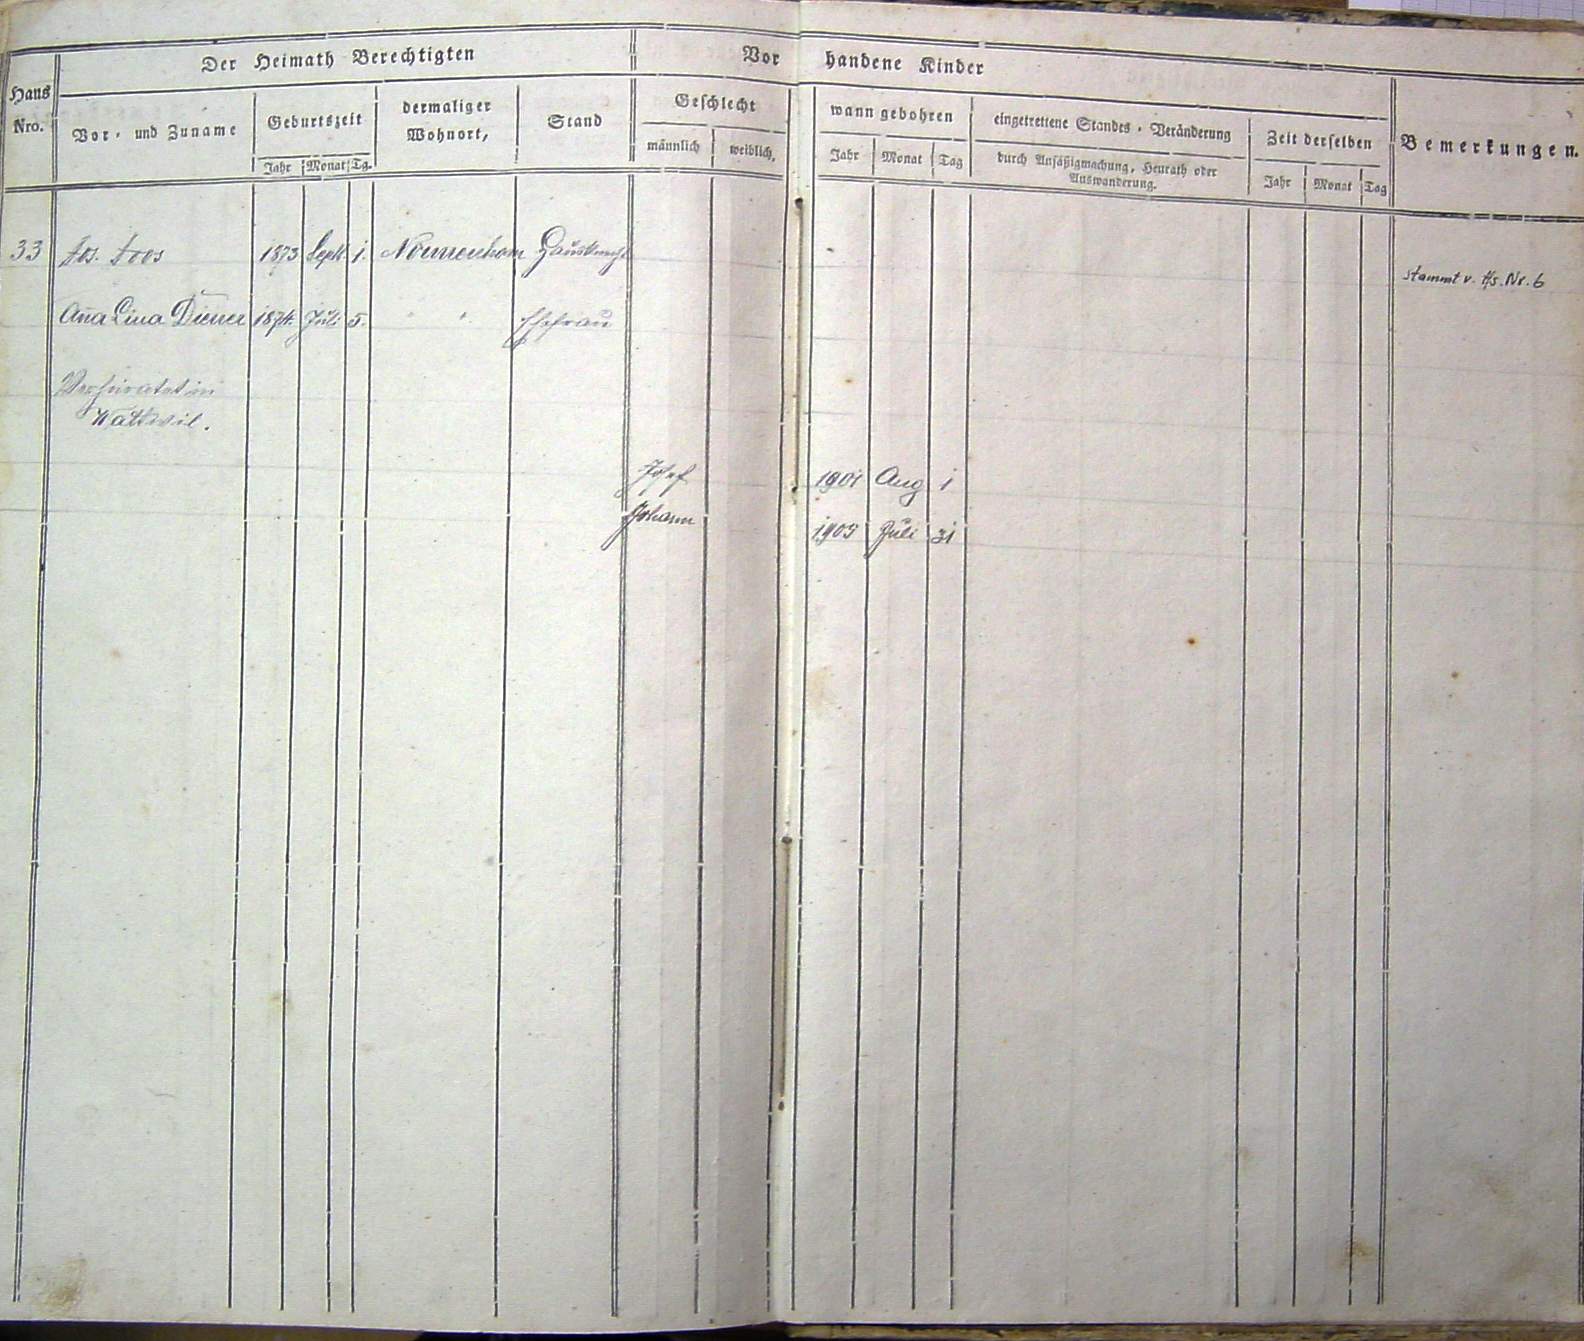 Der Heimath Berechtigten
Vorhandene Kinder
Haus Nro.
Vor- und Zuname
Geburtszeit
Jahr Monat Tg.
dermaliger Wohnort,
Stand
Geschlecht
männlich weiblich,
wann gebohren
Jahr Monat Tag
eingetrettene Standes-Veränderung
durch Ansäßigmachung, Heurath oder
Auswanderung.
Zeit derselben
Jahr Monat Tag
Bemerkungen.
33 Jos. 1873 Sept. 1. Hausknecht
stammt v. Hs. Nr. 6
Aña Lina Diener 1874. Juli 5. " " Ehefrau
Verheiratet in
Wattwil.
Josef 1901 Aug 1
Johann 1905 Juli 31